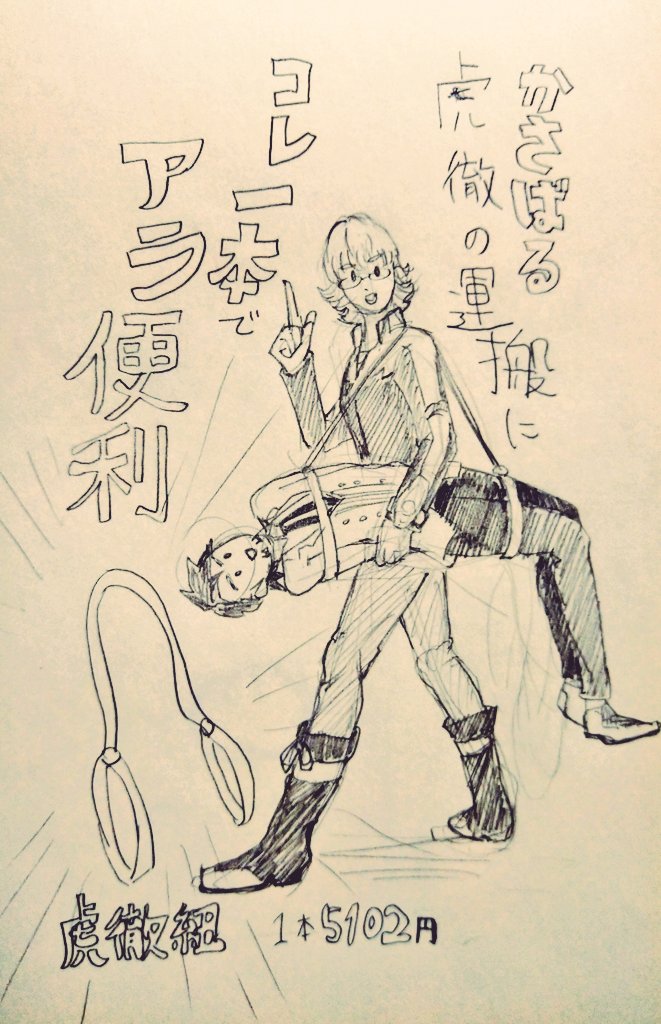 かさばる
虎徹の運搬に
コレ一本で
アラ便利
虎徹紐 1本5102円